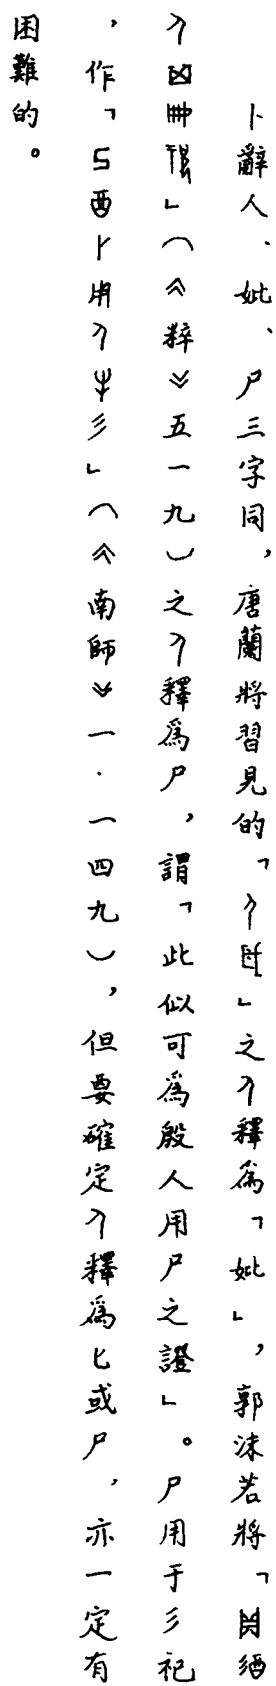 卜辭人、妣、尸三字同，唐蘭將習見的「」之釋爲「妣」，郭沫若將「
」（《粹》五一九）之釋爲尸，謂「此似可爲殷人用尸之證」。尸用于彡祀
，作「用彡」（《南師》一·一四九），但要確定釋爲匕或尸，亦一定有
困難的。